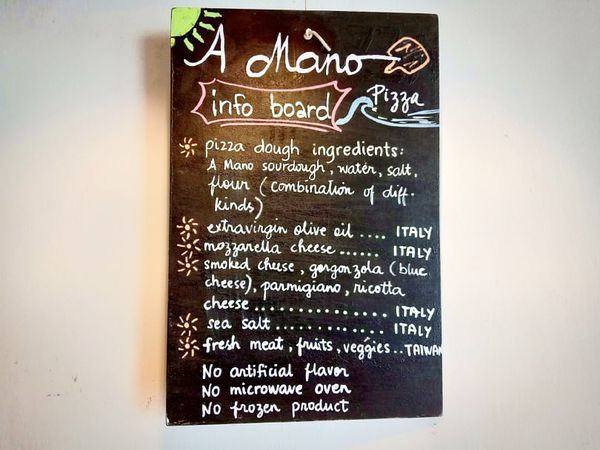 A Màno
info board
Pizza
pizza dough ingredients:
A Mano sourdough, water, salt,
flour (combination of diff.
kinds)
extravirgin olive oil .... ITALY
mozzarella cheese ...... ITALY
smoked cheese, gorgonzola (blue
cheese), parmigiano, ricotta
cheese ................ ITALY
sea salt ............. ITALY
fresh meat, fruits, veggies .. TAIWAN
No artificial flavor
No microwave oven
No frozen product